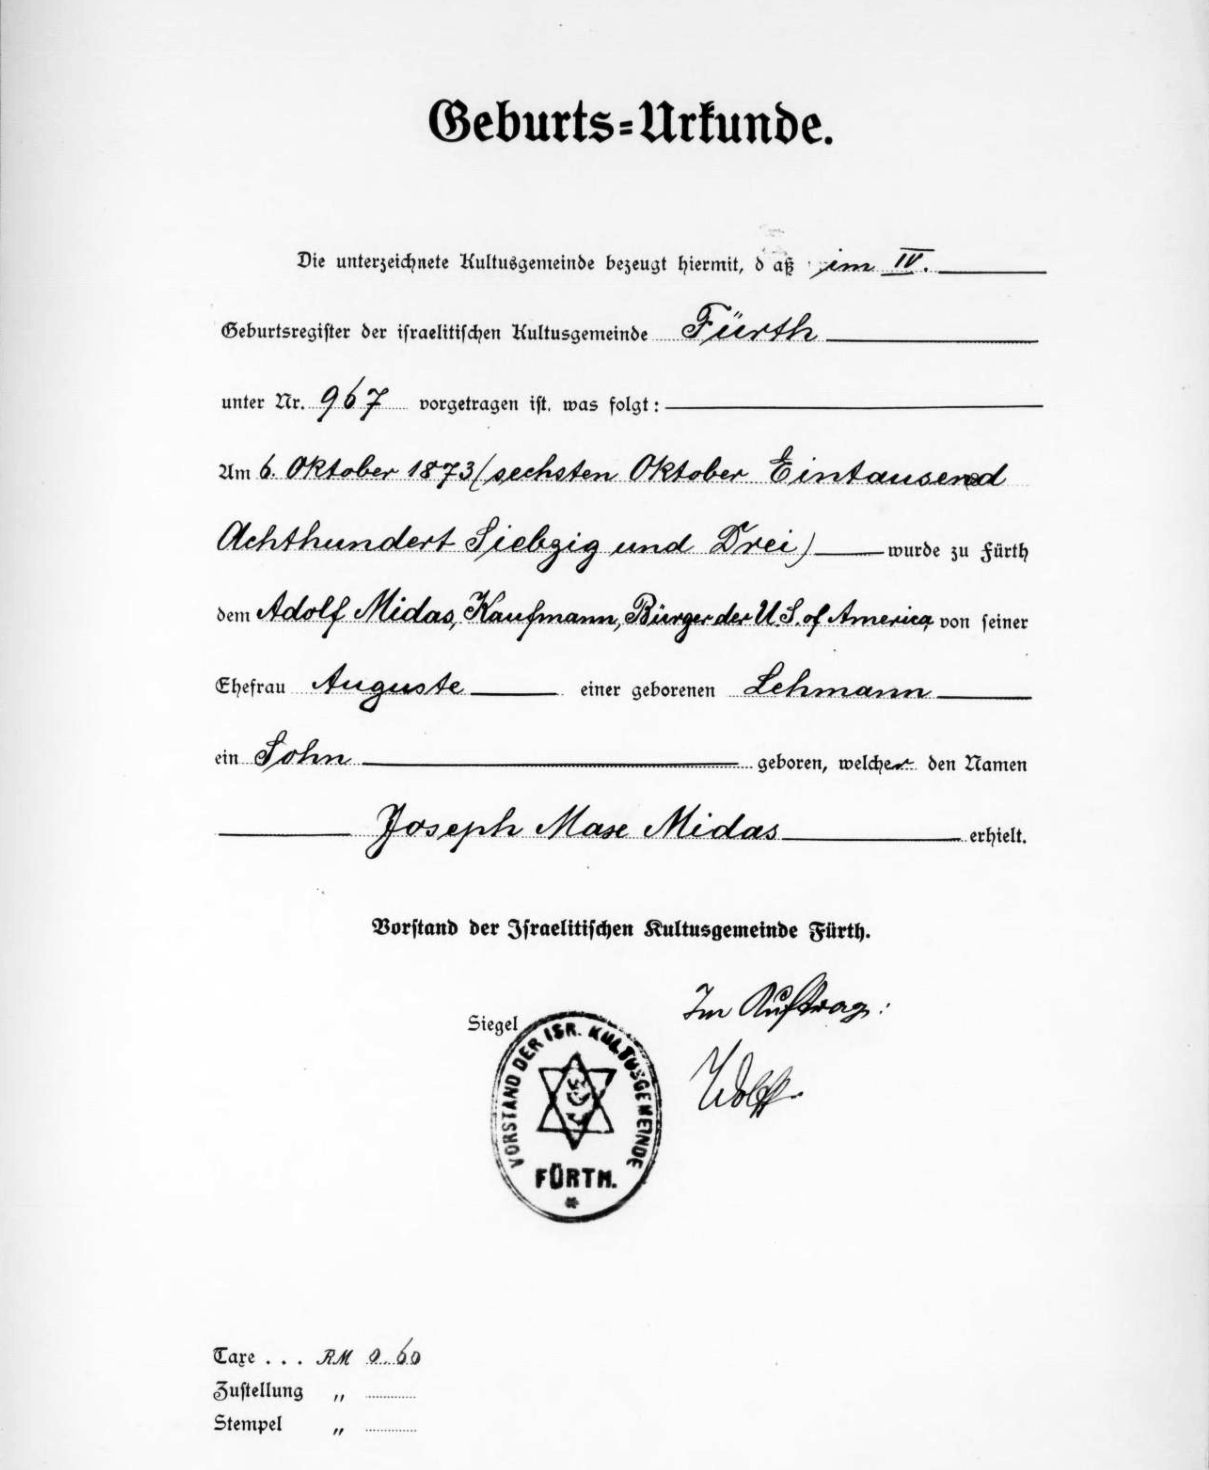 Geburts=Urkunde.
Die unterzeichnete Kultusgemeinde bezeugt hiermit, daß im IV.
Geburtsregister der israelitischen Kultusgemeinde Fürth
unter Nr. 967 vorgetragen ist, was folgt:
Am 6. Oktober 1873 (sechsten Oktober Eintausend
Achthundert Siebzig und Drei) wurde zu Fürth
dem Adolf Midas, Kaufmann, Bürger der U.S. of America von seiner
Ehefrau Auguste einer geborenen Lehmann
ein Sohn geboren, welcher den Namen
Joseph Max Midas erhielt.
Vorstand der Israelitischen Kultusgemeinde Fürth.
Im Auftrag:
Siegel
VORSTAND DER ISR. KULTUSGEMEINDE
FÜRTH.
Wolff
Taxe . . . RM 0.60
Zustellung "
Stempel "